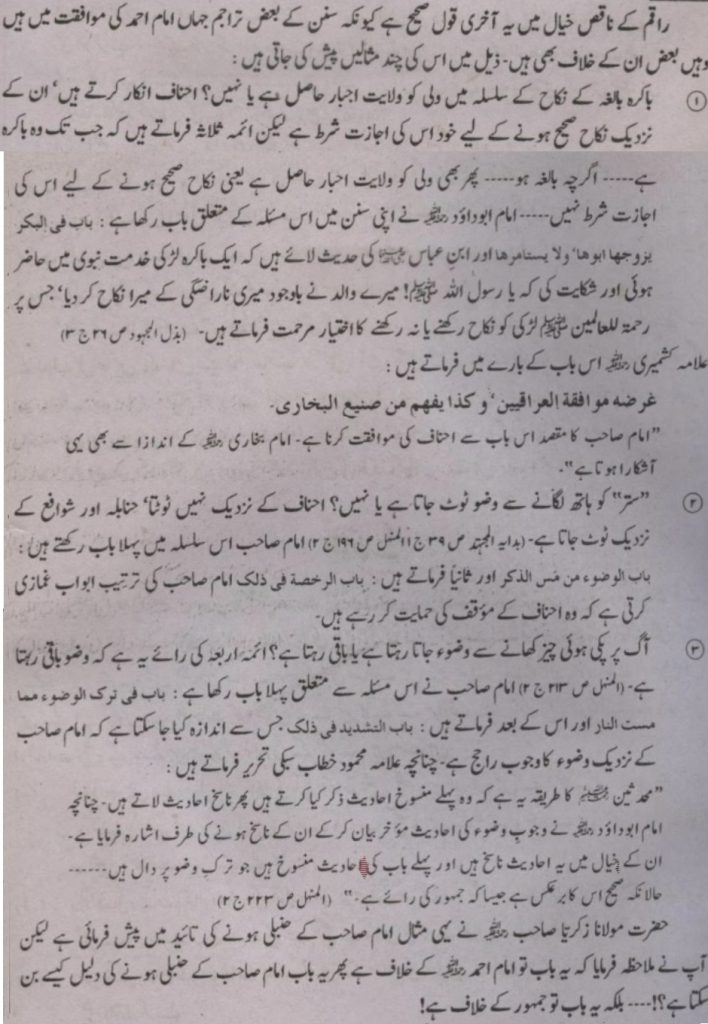 راقم کے ناقص خیال میں یہ آخری قول صحیح ہے کیونکہ سنن کے بعض تراجم جہاں امام احمد کی موافقت میں ہیں
وہیں بعض ان کے خلاف بھی ہیں- ذیل میں اس کی چند مثالیں پیش کی جاتی ہیں :
① باکرہ بالغہ کے نکاح کے سلسلہ میں ولی کو ولایت اجبار حاصل ہے یا نہیں؟ احناف انکار کرتے ہیں' ان کے
نزدیک نکاح صحیح ہونے کے لیے خود اس کی اجازت شرط ہے لیکن ائمہ ثلاثہ فرماتے ہیں کہ جب تک وہ باکرہ
ہے----- اگرچہ بالغہ ہو----- پھر بھی ولی کو ولایت اجبار حاصل ہے یعنی نکاح صحیح ہونے کے لیے اس کی
اجازت شرط نہیں----- امام ابوداؤد رحمۃ اللہ علیہ نے اپنی سنن میں اس مسئلہ کے متعلق باب رکھا ہے : باب فی البکر
یزوجها ابوها' ولا یستامرها اور ابن عباس رضی اللہ عنہما کی حدیث لائے ہیں کہ ایک باکرہ لڑکی خدمت نبوی میں حاضر
ہوئی اور شکایت کی کہ یا رسول اللہ ﷺ! میرے والد نے باوجود میری ناراضگی کے میرا نکاح کر دیا' جس پر
رحمۃ للعالمین ﷺ لڑکی کو نکاح رکھنے یا نہ رکھنے کا اختیار مرحمت فرماتے ہیں- (بذل المجہود ص ۲۶ ج ۳)
علامہ کشمیری رحمۃ اللہ علیہ اس باب کے بارے میں فرماتے ہیں :
غرضه موافقة العراقیین' و کذا یفهم من صنیع البخاری-
"امام صاحب کا مقصد اس باب سے احناف کی موافقت کرنا ہے- امام بخاری رحمۃ اللہ علیہ کے انداز سے بھی یہی
آشکارا ہوتا ہے"-
② "ستر" کو ہاتھ لگانے سے وضو ٹوٹ جاتا ہے یا نہیں؟ احناف کے نزدیک نہیں ٹوٹتا' حنابلہ اور شوافع کے
نزدیک ٹوٹ جاتا ہے- (بدایہ المجتہد ص ۳۹ ج ۱' المنهل ص ۱۹۶ ج ۲) امام صاحب اس سلسلہ میں پہلا باب رکھتے ہیں :
باب الوضوء من مس الذکر اور ثانیاً فرماتے ہیں : باب الرخصة فی ذلک امام صاحب کی ترتیب ابواب غمازی
کرتی ہے کہ وہ احناف کے مؤقف کی حمایت کر رہے ہیں-
③ آگ پر پکی ہوئی چیز کھانے سے وضوء جاتا رہتا ہے یا باقی رہتا ہے؟ ائمہ اربعہ کی رائے یہ ہے کہ وضو باقی رہتا
ہے- (المنهل ص ۲۱۳ ج ۲) امام صاحب نے اس مسئلہ سے متعلق پہلا باب رکھا ہے : باب فی ترک الوضوء مما
مست النار اور اس کے بعد فرماتے ہیں : باب التشدید فی ذلک جس سے اندازہ کیا جا سکتا ہے کہ امام صاحب
کے نزدیک وضوء کا وجوب راجح ہے- چنانچہ علامہ محمود خطاب سبکی تحریر فرماتے ہیں :
"محدثین رحمۃ اللہ علیہم کا طریقہ یہ ہے کہ وہ پہلے منسوخ احادیث ذکر کیا کرتے ہیں پھر ناسخ احادیث لاتے ہیں- چنانچہ
امام ابوداؤد رحمۃ اللہ علیہ نے وجوب وضوء کی احادیث مؤخر بیان کر کے ان کے ناسخ ہونے کی طرف اشارہ فرمایا ہے-
ان کے خیال میں یہ احادیث ناسخ ہیں اور پہلے باب کی احادیث منسوخ ہیں جو ترک وضو پر دال ہیں------
حالانکہ صحیح اس کا برعکس ہے جیسا کہ جمہور کی رائے ہے-" (المنهل ص ۲۲۳ ج ۲)
حضرت مولانا زکریا صاحب رحمۃ اللہ علیہ نے یہی مثال امام صاحب کے حنبلی ہونے کی تائید میں پیش فرمائی ہے لیکن
آپ نے ملاحظہ فرمایا کہ یہ باب تو امام احمد رحمۃ اللہ علیہ کے خلاف ہے پھر یہ باب امام صاحب کے حنبلی ہونے کی دلیل کیسے بن
سکتا ہے؟!---- بلکہ یہ باب تو جمہور کے خلاف ہے!